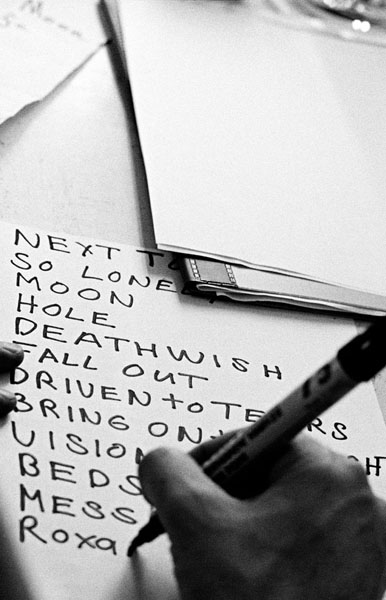 NEXT TO
SO LONELY
MOON
HOLE
DEATHWISH
FALL OUT
DRIVEN to TEARS
BRING ON
VISION
BEDS
MESS
Roxa